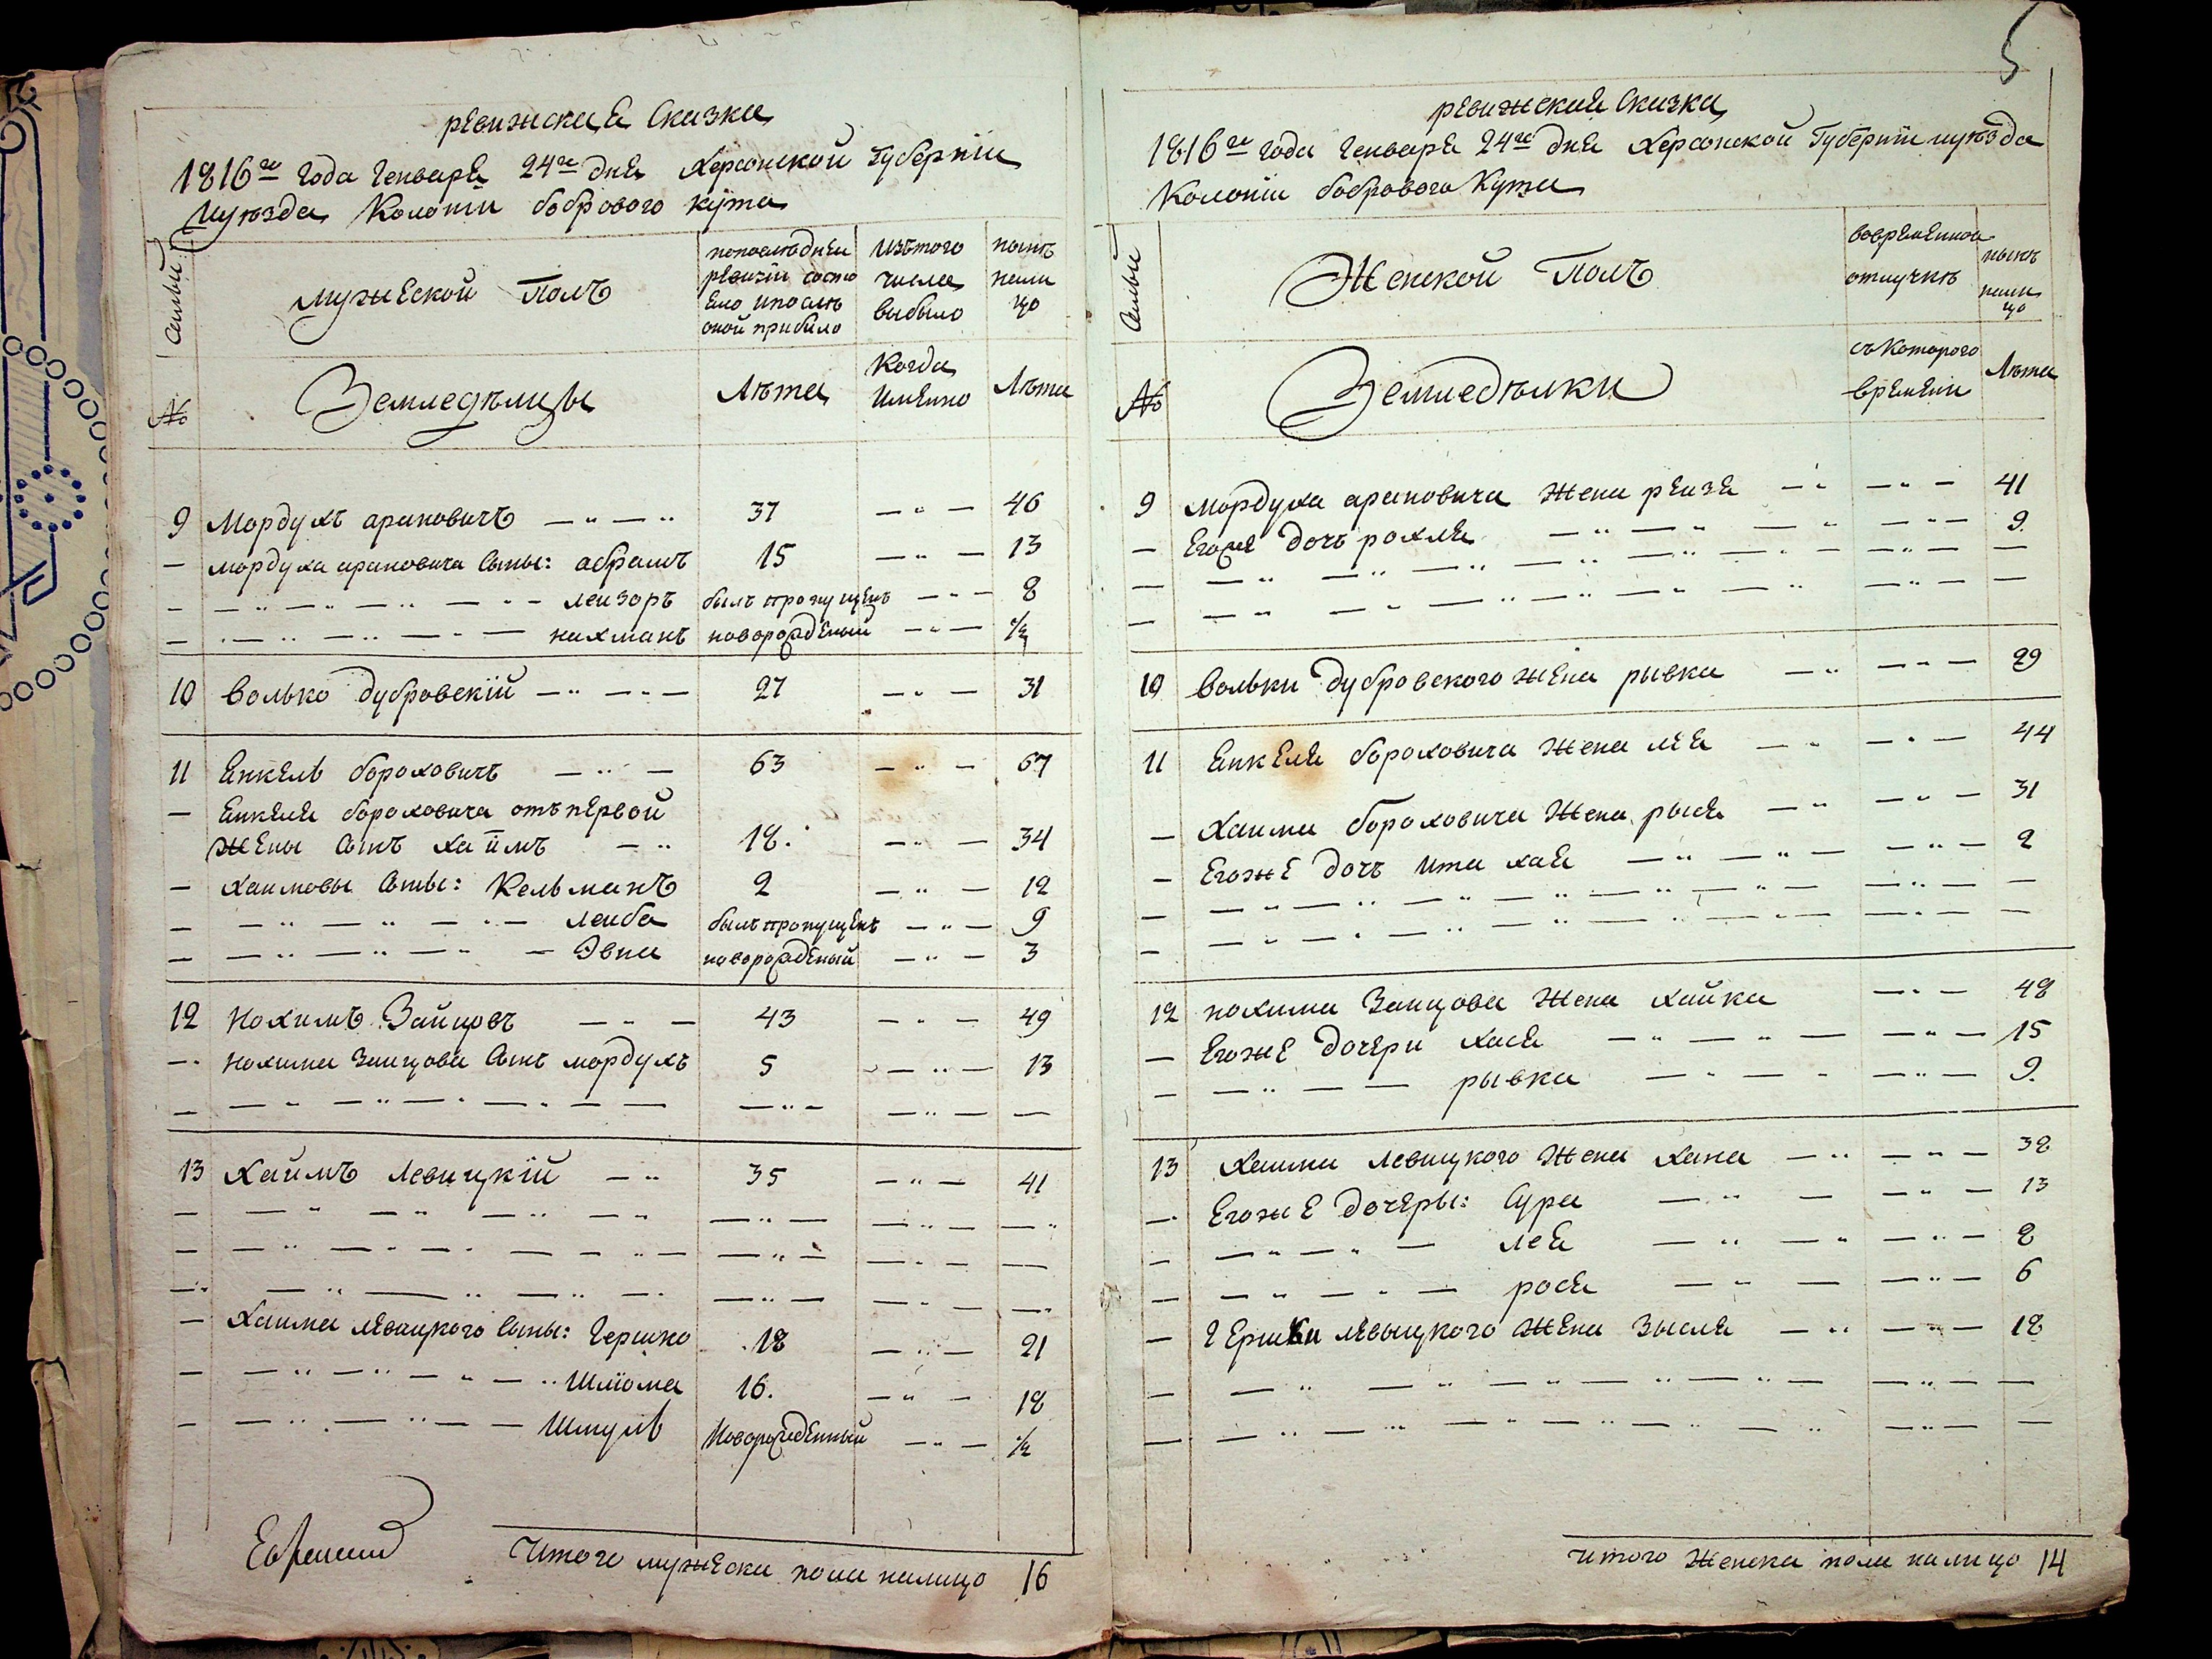 ревижская Сказка
1816го года Генваря 24го дня Херсонской Губернїи
иуезда Колонїи бобрового кута
Семьи
мужеской Полъ
попоследней
ревизїи состо
яло ипосле
оной прибыло
изтого
числа
выбыло
ныне
нали
цо
№
Земледельцы
Лѣта
Когда
имянно
Лѣта
9 Мордухъ ароновичъ — 〃 — 〃 37 — 〃 — 46
— мордуха ароновича Сыны: абрамъ 15 — 〃 — 13
— — 〃 — 〃 — 〃 — лейзоръ былъ пропущенъ — 〃 — 8
— — 〃 — 〃 — 〃 — нахманъ новорожденый — 〃 — 1/2
10 Волько дубровскїй — 〃 — 〃 — 27 — 〃 — 31
11 Янкель бороховичъ — 〃 — 63 — 〃 — 67
— Янкеля бороховича отъпервой
жены Сынъ хаимъ — 〃 18. — 〃 — 34
— хаимовы Сыны: Кельманъ 2 — 〃 — 12
— — 〃 — 〃 — 〃 — лейба былъ пропущенъ — 〃 — 9
— — 〃 — 〃 — 〃 — Эвна новорожденый — 〃 — 3
12 Нохимъ Зайцовъ — 〃 — 43 — 〃 — 49
— Нохима Заицова Сынъ мордухъ 5 — 〃 — 13
— — 〃 — 〃 — 〃 — 〃 — — — 〃 — — 〃 — —
13 Хаимъ Левицкїй — 〃 35 — 〃 — 41
— — 〃 — 〃 — 〃 — 〃 — 〃 — — 〃 — — 〃
— — 〃 — 〃 — 〃 — 〃 — — 〃 — — 〃 — —
— — 〃 — 〃 — 〃 — 〃 — 〃 — — 〃 — — 〃
— Хаима левицкого Сыны: Гершко 18 — 〃 — 21
— — 〃 — 〃 — 〃 — 〃 Шлїома 16. — 〃 — 18
— — 〃 — 〃 — — Шмуль Новорожденный — 〃 — 1/2
Итого мужеска пола налицо 16
5
ревижская Сказка
1816го года Генваря 24го дня Херсонской Губернїи иуезда
Колонїи бобрового Кута
Семьи
Женской Полъ
вовременной
отлучке
ныне
нали
цо
№
Земледелки
съкоторого
времени
Лѣта
9 мордуха ароновича жена рейзя — 〃 — 〃 — 41
— Егоже дочь рохля — 〃 — 〃 — 〃 — 〃 — 9.
— — 〃 — 〃 — 〃 — 〃 — 〃 — 〃 — 〃 — —
— — 〃 — 〃 — 〃 — 〃 — 〃 — 〃 — 〃 — —
10 Вольки дубровского жена рывка — 〃 — 〃 — 29
11 Янкеля бороховича жена лея — 〃 — 〃 — 44
— Хаима бороховича жена рыся — 〃 — 〃 — 31
— Егоже дочь ита хая — 〃 — 〃 — — 〃 — 2
— — 〃 — 〃 — 〃 — 〃 — 〃 — 〃 — — 〃 — —
— — 〃 — 〃 — 〃 — 〃 — 〃 — 〃 — — 〃 — —
12 нохима Заицова жена хайка — 〃 — 48
— Егоже дочери хася — 〃 — 〃 — — 〃 — 15
— — 〃 — — рывка — 〃 — 〃 — 〃 — 9.
13 Хаима левицкого жена хана — 〃 — 〃 — 38
— Егоже дочеры: Сура — 〃 — — 〃 — 13
— — 〃 — 〃 — лея — 〃 — 〃 — 〃 — 8
— — 〃 — 〃 — рося — 〃 — — 〃 — 6
— Гершки левыцкого жена Зысля — 〃 — 〃 — 18
— — 〃 — 〃 — 〃 — 〃 — 〃 — — 〃 — —
— — 〃 — 〃 — 〃 — 〃 — 〃 — 〃 — 〃 — —
итого женска пола налицо 14